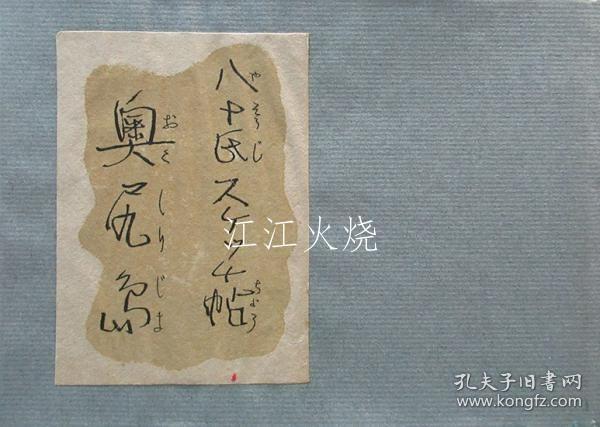 八十氏スケッチ帖
やそうじ
ちょう
奥尻島
おくしりじま
江江火烧
孔夫子旧书网
www.kongfz.com